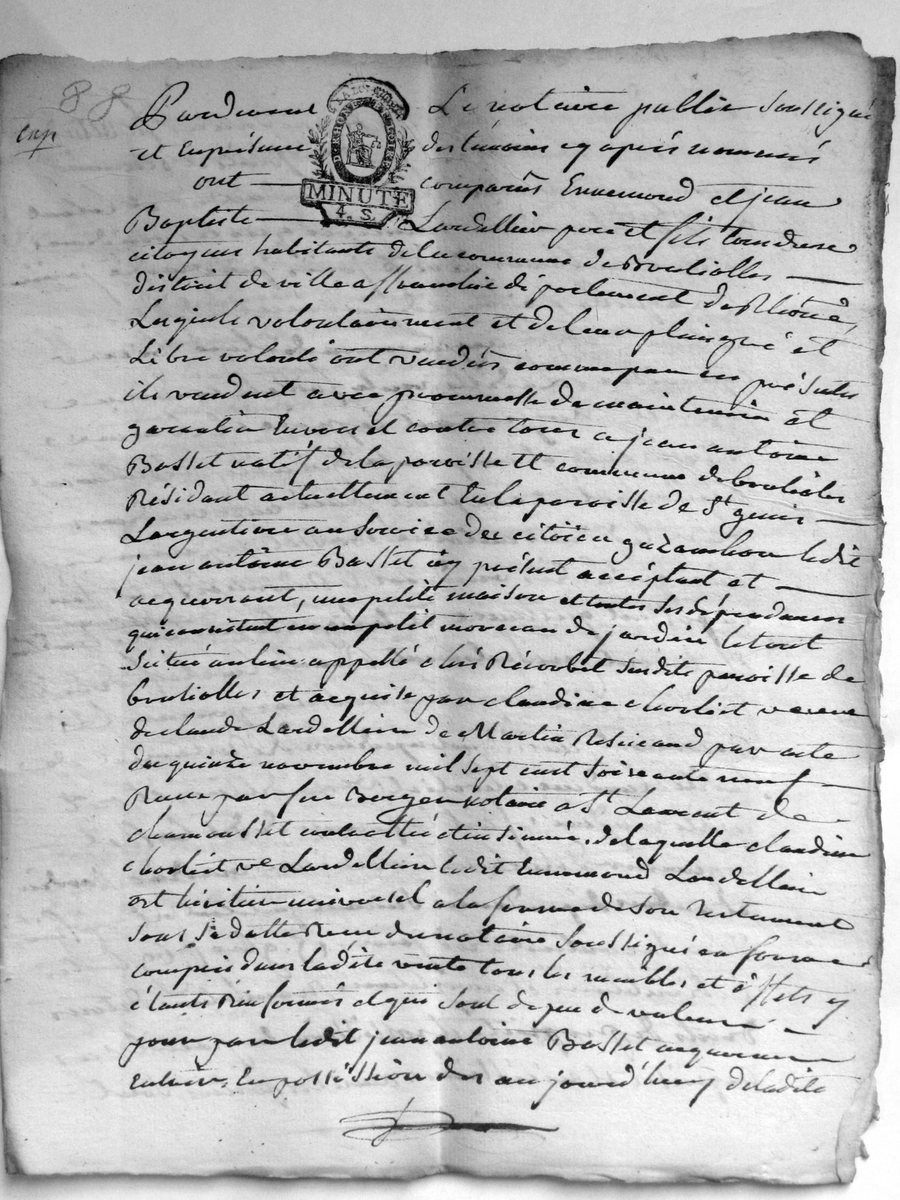 88
Enp
Pardevant Le notaire public soussigné
et En présence des témoins cy après nommés
ont comparus Ennemond et jean
MINUTE
4. S.
Baptiste Lardellier pere et fils tous deux
citoyens habitants de la commune de Brulliolles
district de ville affranchie département de Rhône
Lesquels volontairement et de leur plein gré et
Libre volonté ont vendus comme par ces présentes
ils vendent avec promesse de maintenir et
garentir Envers et contre tous a jean antoine
Basset natif de la paroisse et commune de brulioles
Résidant actuellement En la paroisse de St genis
Largentiere au service du citöien le dit
jean antoine Basset icy présent acceptant et
acquererant, une petite maison et toutes ses dépendances
qui consistent en un petit morceau de jardin le tout
Situé au lieu appellé chés Récorbet susdite paroisse de
brulliolles et acquise par claudine veuve
de claude Lardellier de Martin par acte
du quinze novembre mil sept cent soixante neuf
Reçu par feu Borgen notaire à St Laurent de
chamousset controllé et insinué. de laquelle claudine
ve Lardellier le dit Ennemond Lardellier
est héritier universel a la forme de son testament
sous sa datte Reçu du notaire soussigné en forme
compris dans la dite vente tous les meubles et éffets y
étants Renfermés et qui sont de peu de valeur
pour par le dit jean antoine Basset acquereur
Entrer En posséssion dès aujourd'huy de la dite